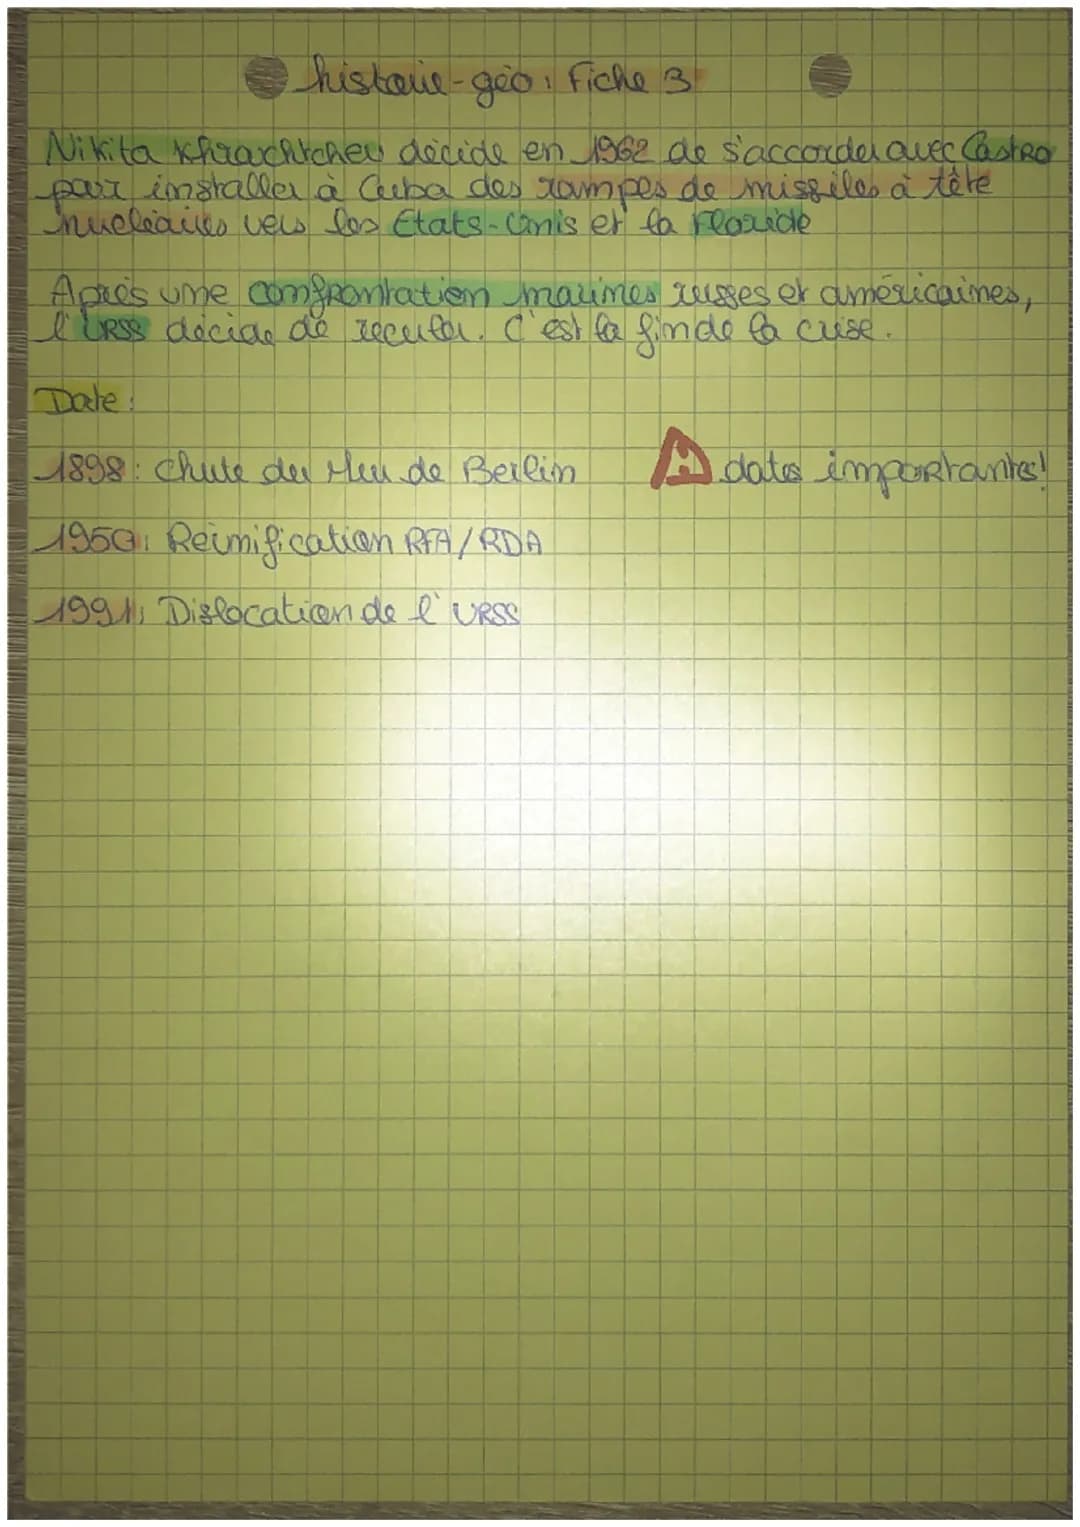 histoire-géo : Fiche 3
Nikita Khrachtchev décide en 1962 de s'accorder avec Castro
pour installer à Cuba des rampes de missiles à tête
nucléaires vers les Etats-Unis et la Floride
Après une confrontation marines russes et américaines,
l'URSS décide de reculer. C'est la fin de la crise.
Date :
1898 : Chute du Mur de Berlin
dates importantes!
1950 : Réunification RFA/RDA
1991 : Dislocation de l'URSS